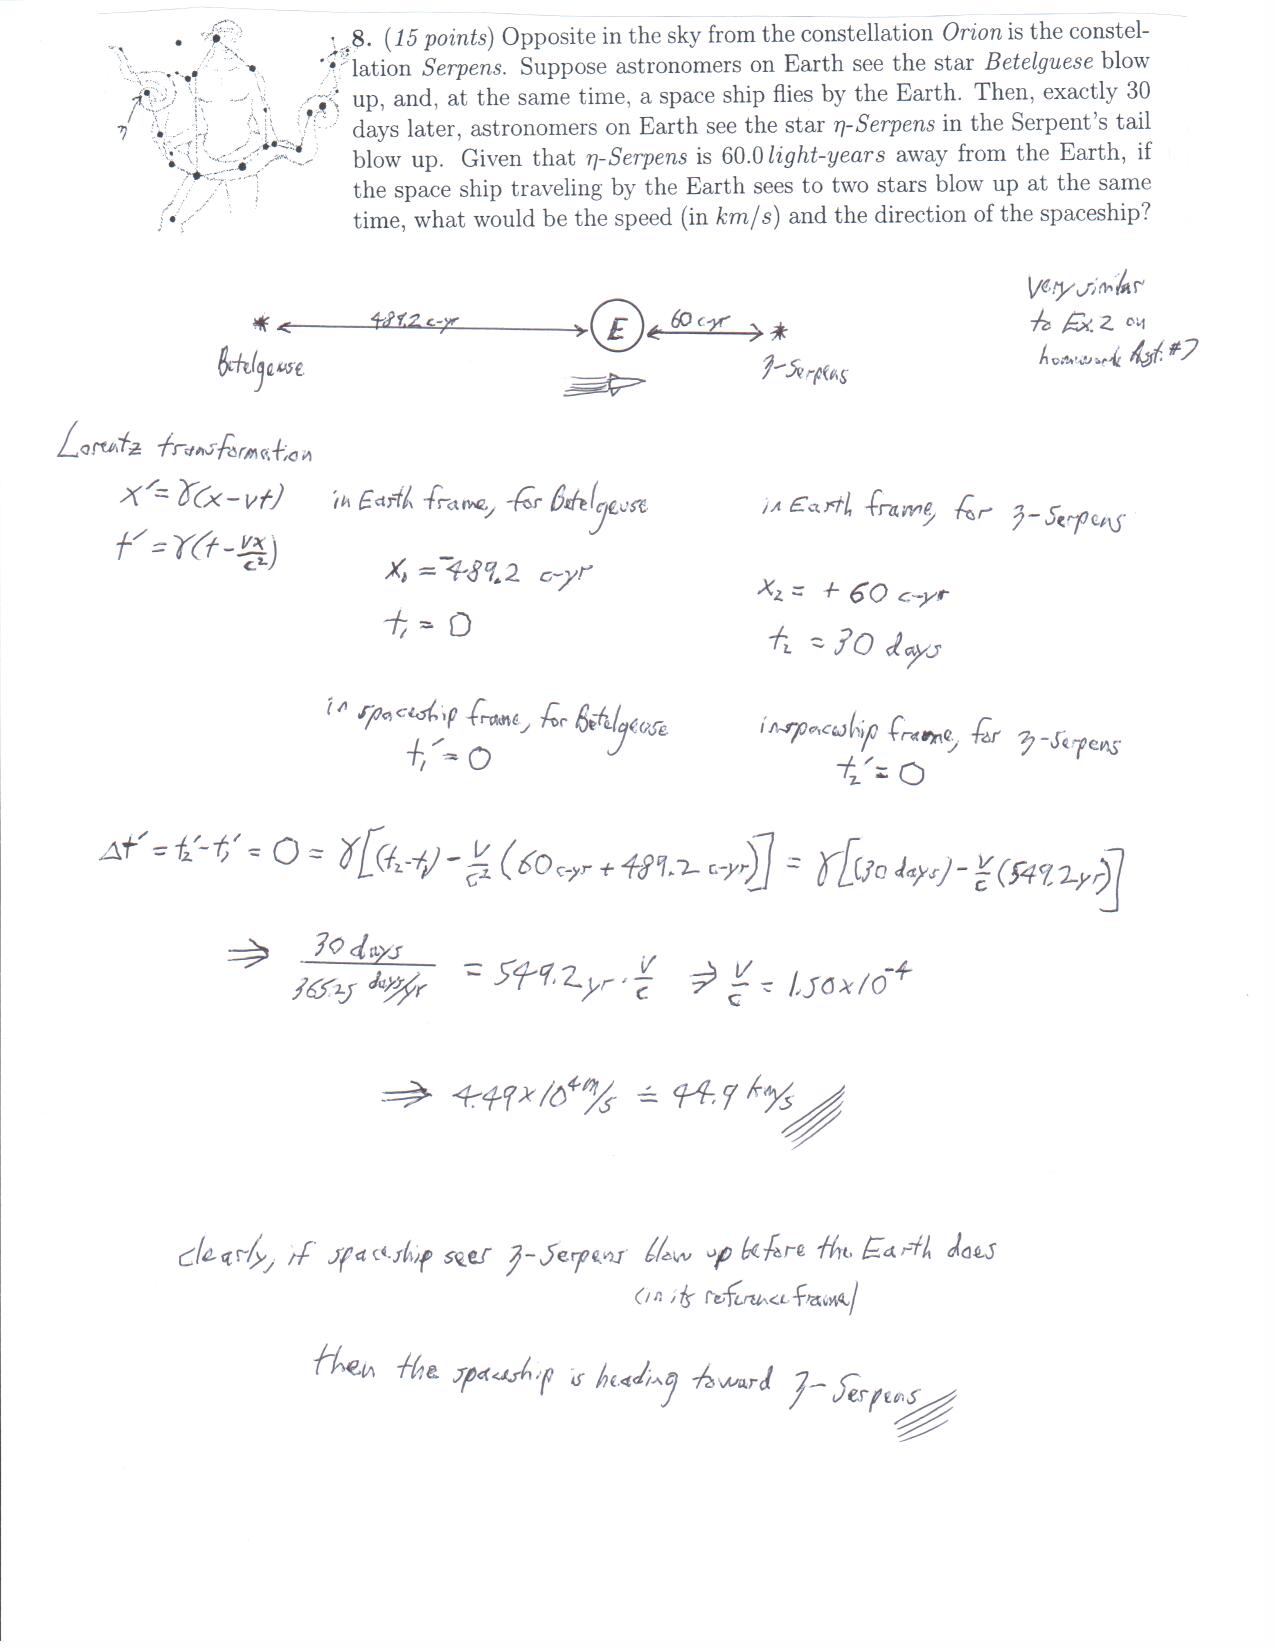 8. (15 points) Opposite in the sky from the constellation Orion is the constel-
lation Serpens. Suppose astronomers on Earth see the star Betelguese blow
up, and, at the same time, a space ship flies by the Earth. Then, exactly 30
days later, astronomers on Earth see the star η-Serpens in the Serpent's tail
blow up. Given that η-Serpens is 60.0 light-years away from the Earth, if
the space ship traveling by the Earth sees to two stars blow up at the same
time, what would be the speed (in km/s) and the direction of the spaceship?
η
Very similar
to Ex. 2 on
homework Asst. #7
489.2 c-yr E 60 c-yr
Betelgeuse
η-Serpens
Lorentz transformation
x′ = γ(x-vt) in Earth frame, for Betelgeuse in Earth frame, for η-Serpens
t′ = γ(t - vx/c²)
x₁ = -489.2 c-yr x₂ = + 60 c-yr
t₁ = 0 t₂ = 30 days
in spaceship frame, for Betelgeuse in spaceship frame, for η-Serpens
t₁′ = 0 t₂′ = 0
Δt′ = t₂′ - t₁′ = 0 = γ[(t₂-t₁) - v/c² (60 c-yr + 489.2 c-yr)] = γ[(30 days) - v/c (549.2 yr)]
⇒ 30 days / 365.25 days/yr = 549.2 yr · v/c ⇒ v/c = 1.50×10⁻⁴
⇒ 4.49×10⁴ m/s ≐ 44.9 km/s
clearly, if spaceship sees η-Serpens blow up before the Earth does
(in its reference frame)
then the spaceship is heading toward η-Serpens